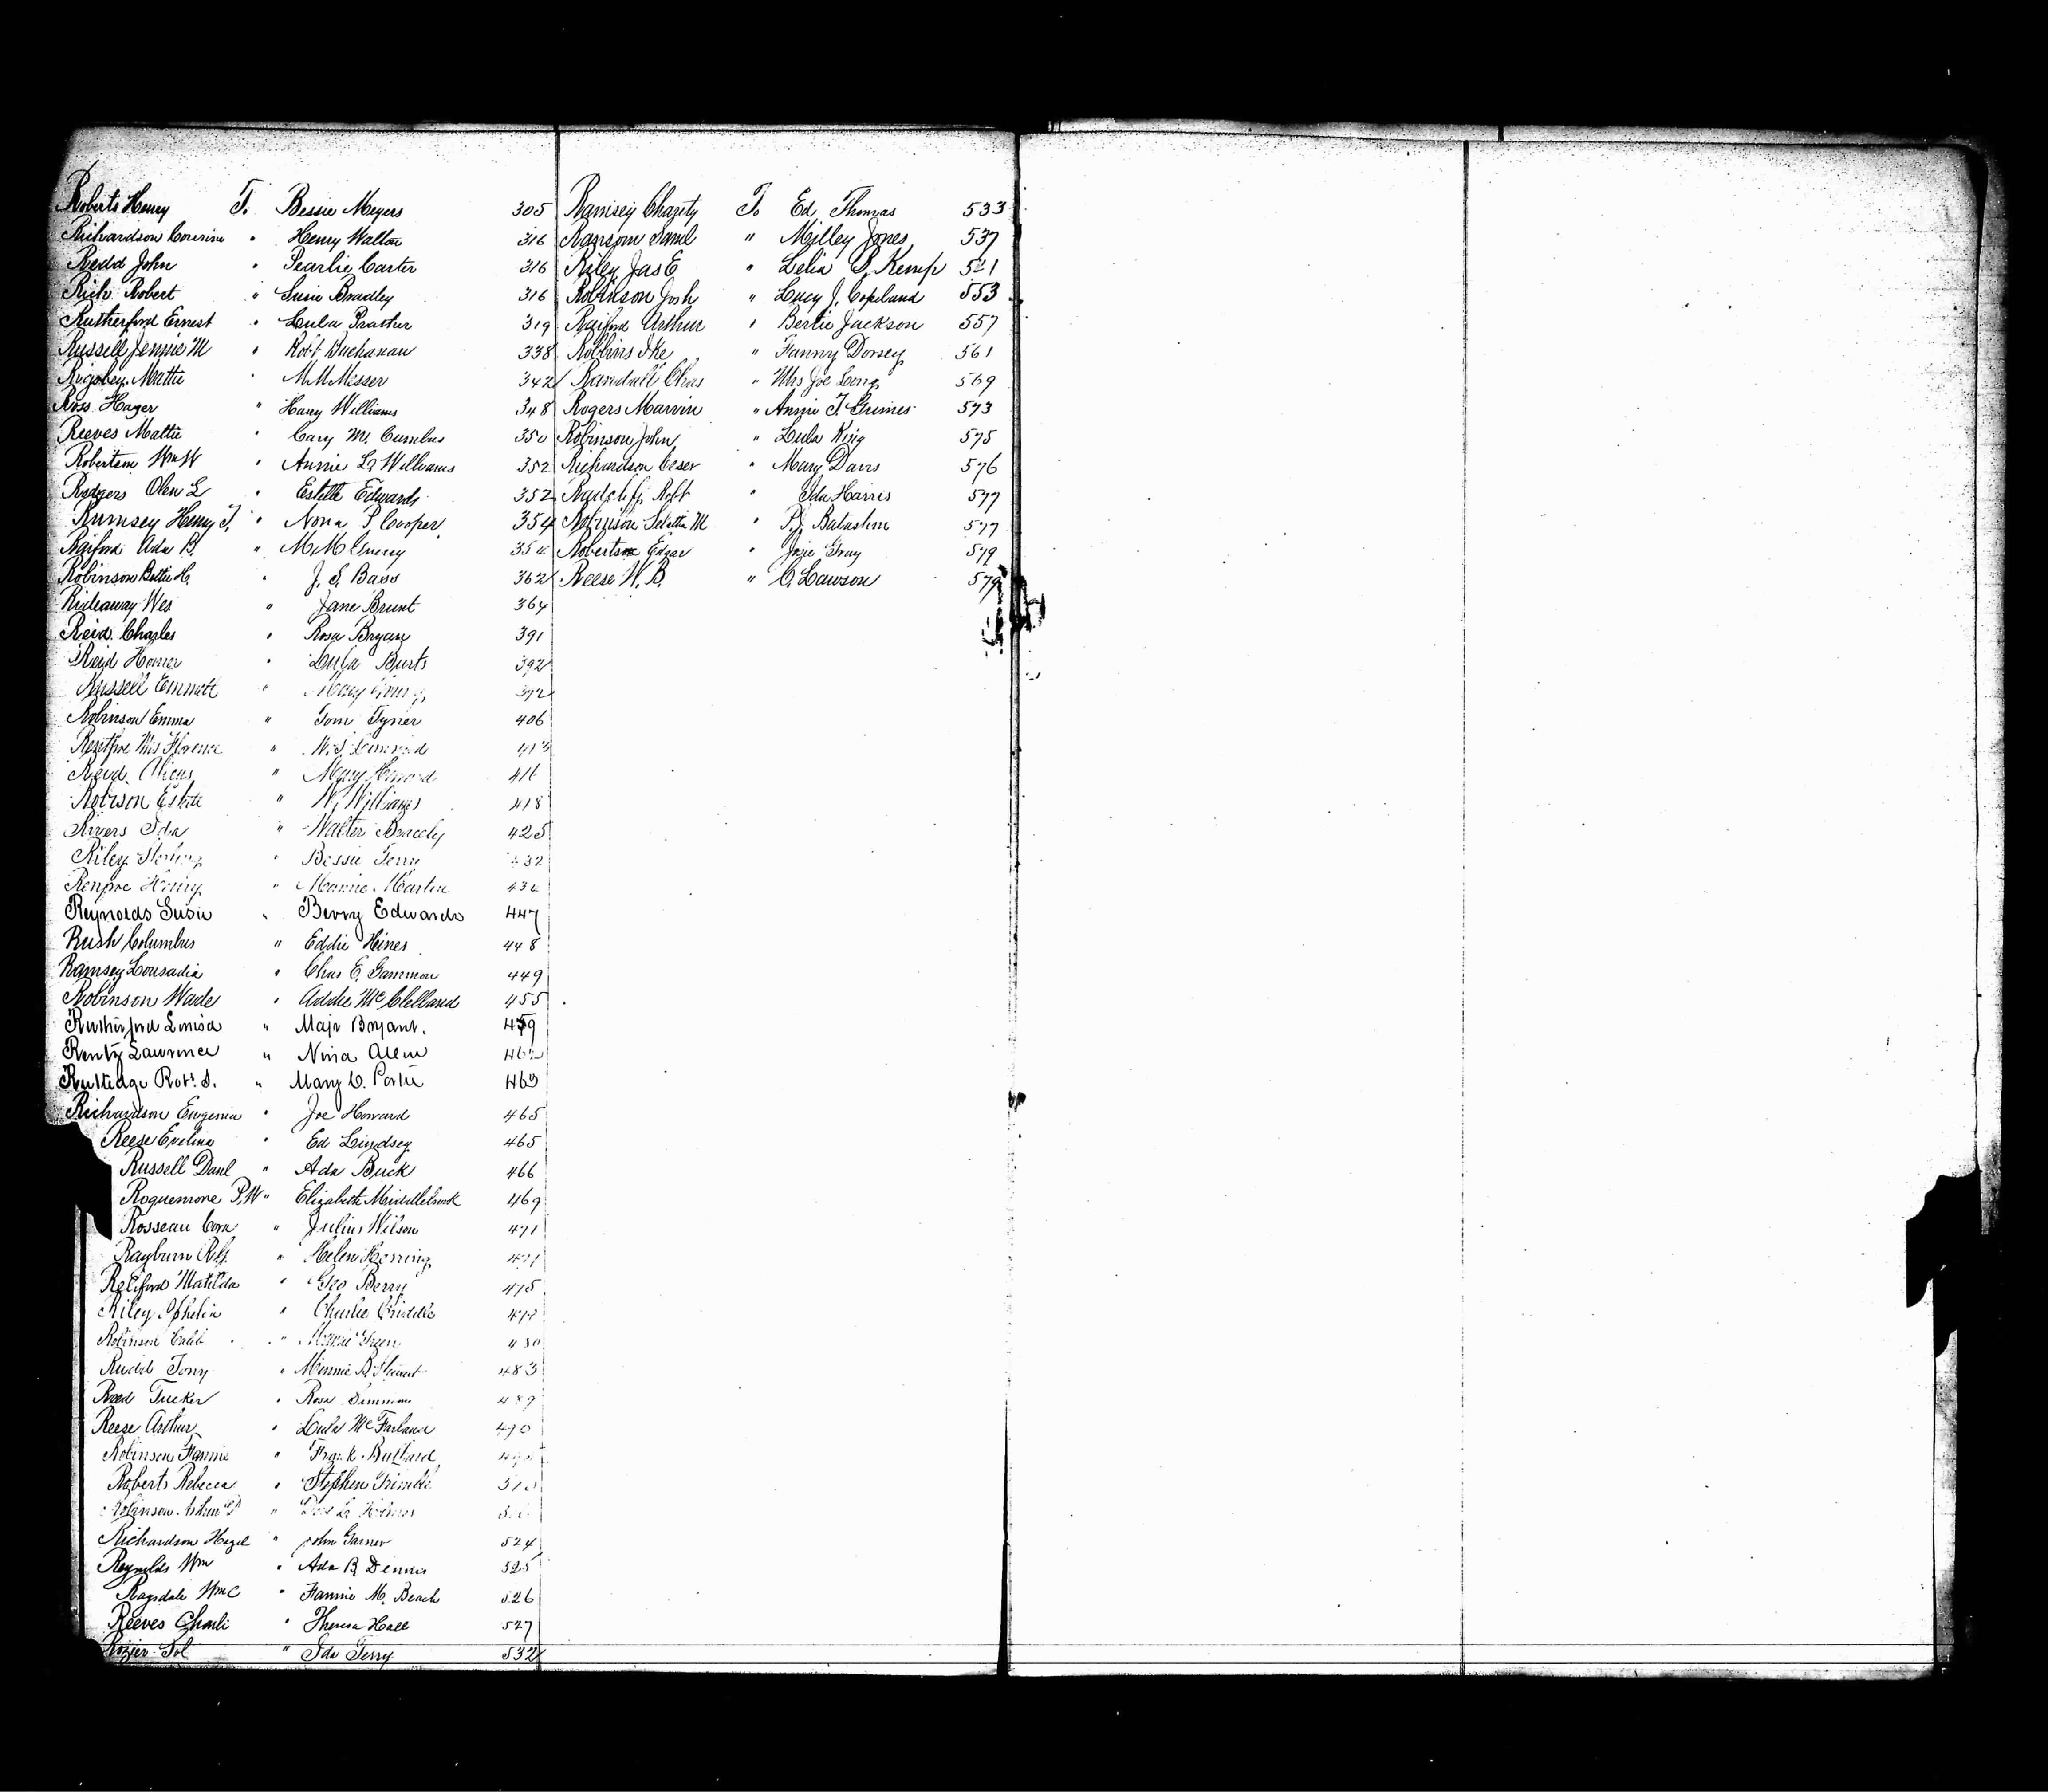 Roberts Henry T. Bessie Meyers 305
Richardson Cousine " Henry Walton 316
Redd John " Pearlie Carter 316
Rich Robert " Susie Bradley 316
Rutherford Ernest " Lula Prather 319
Russell Jennie M " Robt Buchanan 338
Rigsbey Mattie " M M Messer 342
Ross Hager " Harry Williams 348
Reeves Mattie " Cary M. Cumbus 350
Robertson Wm W " Annie L. Williams 352
Rodgers Olen L " Estelle Edwards 352
Rumsey Henry T. " Nona P. Cooper 354
Raiford Ada B. " M M 354
Robinson Bettie H. " J. S. Bass 362
Rideaway Wes " Jane Brunt 364
Reid Charles " Rosa Bryan 391
Reid Homer " Lula Burts 392
Russell Emmett " Mary 392
Robinson Emma " Tom Tyner 406
Rentfroe Mrs Florence " W. S. 413
Reid " Mary Howard 416
Robison Estelle " W. Williams 418
Rivers Ida " Walter Bracely 425
Riley Sterling " Bessie Terry 432
Renfroe Henry " Mamie Martin 434
Reynolds Susie " Berry Edwards 447
Rush Columbus " Eddie Hines 448
Ramsey Lousadia " Chas E. Gammon 449
Robinson Wade " Addie McClelland 455
Rutherford Louisa " Majr Bryant. 459
Rentz Lawrence " Nina Allen
Rutledge Robt. S. " Mary C. Porter 463
Richardson Eugenia " Joe Howard 465
Reese Evelina " Ed Lindsey 465
Russell Danl " Ada Buck 466
Roquemore P. W " Elizabeth Middlebrook 469
Rosseau Cora " Julius Wilson 471
Rayburn " Helen Herring 471
Reliford Matilda " Geo Berry 475
Riley Ophelia " Charlie Criddle 477
Robinson Calib " Green 480
Rudd Tony " Minnie B. Stewart 483
Reed Tucker " Rosa Simmons 489
Reese Arthur " Lula McFarland 490
Robinson Fannie " Frank Bullard
Roberts Rebecca " Stephen Trimble 510
Robinson " Holmes
Richardson Hazel " John Garner 524
Reynolds Wm " Ada B. Dennis 525
Ragsdale Wm C " Fannie M. Beach 526
Reeves Charli " Theresa Hall 527
Rozier Sol " Ida Terry 532
Ramsey Charity To Ed Thomas 533
Ransom Saml " Milley Jones 537
Riley Jas E " Lelia B. Kemp 541
Robinson Josh " Lucy J. Copeland 553
Raiford Arthur " Bertie Jackson 557
Robbins Ike " Fanny Dorsey 561
Randall Chas " Mrs Joe Long 569
Rogers Marvin " Annie T. Grimes 573
Robinson John " Lula King 575
Richardson Ceser " Mary Davis 576
Radcliff Robt " Ida Harris 577
Robinson Seletta M " P. J. Batastini 577
Robertson Edgar " Josie Gray 579
Reese W. B. " C. Lawson 579